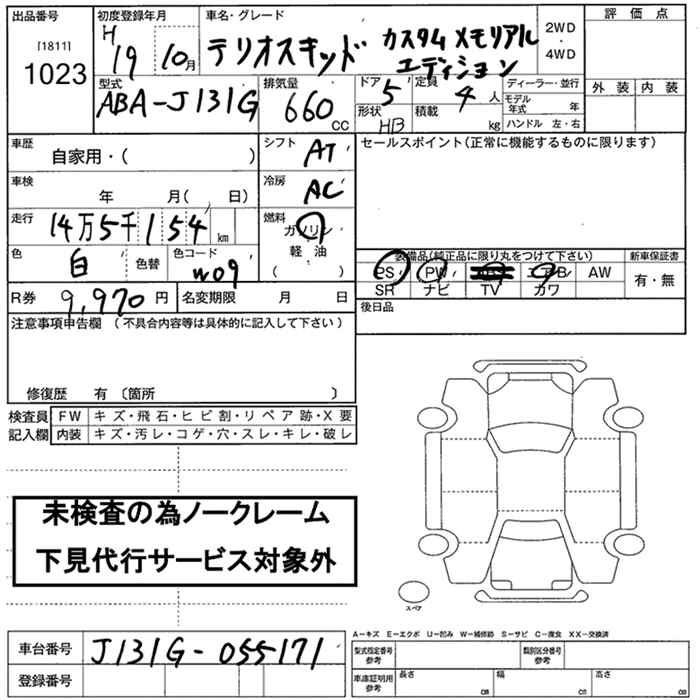 出品番号 初度登録年月 車名・グレード 評価点
[1811] H 2WD・4WD
1023 19 10月 テリオスキッド カスタムメモリアル
エディション
外装 内装
型式 排気量 ドア 定員 ディーラー・並行
ABA-J131G 660 CC 5 4 人 モデル年式 年
形状 HB 積載 kg ハンドル 左・右
車歴 シフト セールスポイント(正常に機能するものに限ります)
自家用・( ) AT
車検 冷房
年 月( 日) AC
走行 燃料
14万5千154 km ガソリン
色 色替 色コード 軽油
白 W09 ( )
装備品(純正品に限り丸をつけて下さい) 新車保証書
PS PW エアB AW 有・無
SR ナビ TV カワ
R券 9,970 円 名変期限 月 日 後日品
注意事項申告欄 (不具合内容等は具体的に記入して下さい)
修復歴 有 〔箇所 〕
検査員 FW キズ・飛石・ヒビ割・リペア跡・X要
記入欄 内装 キズ・汚レ・コゲ・穴・スレ・キレ・破レ
未検査の為ノークレーム
下見代行サービス対象外
スペア
A-キズ E-エクボ U-凹み W-補修跡 S-サビ C-腐食 XX-交換済
車台番号 J131G-055171 型式指定番号 参考 類別区分番号 参考
登録番号 車庫証明用 参考 長さ cm 幅 cm 高さ cm